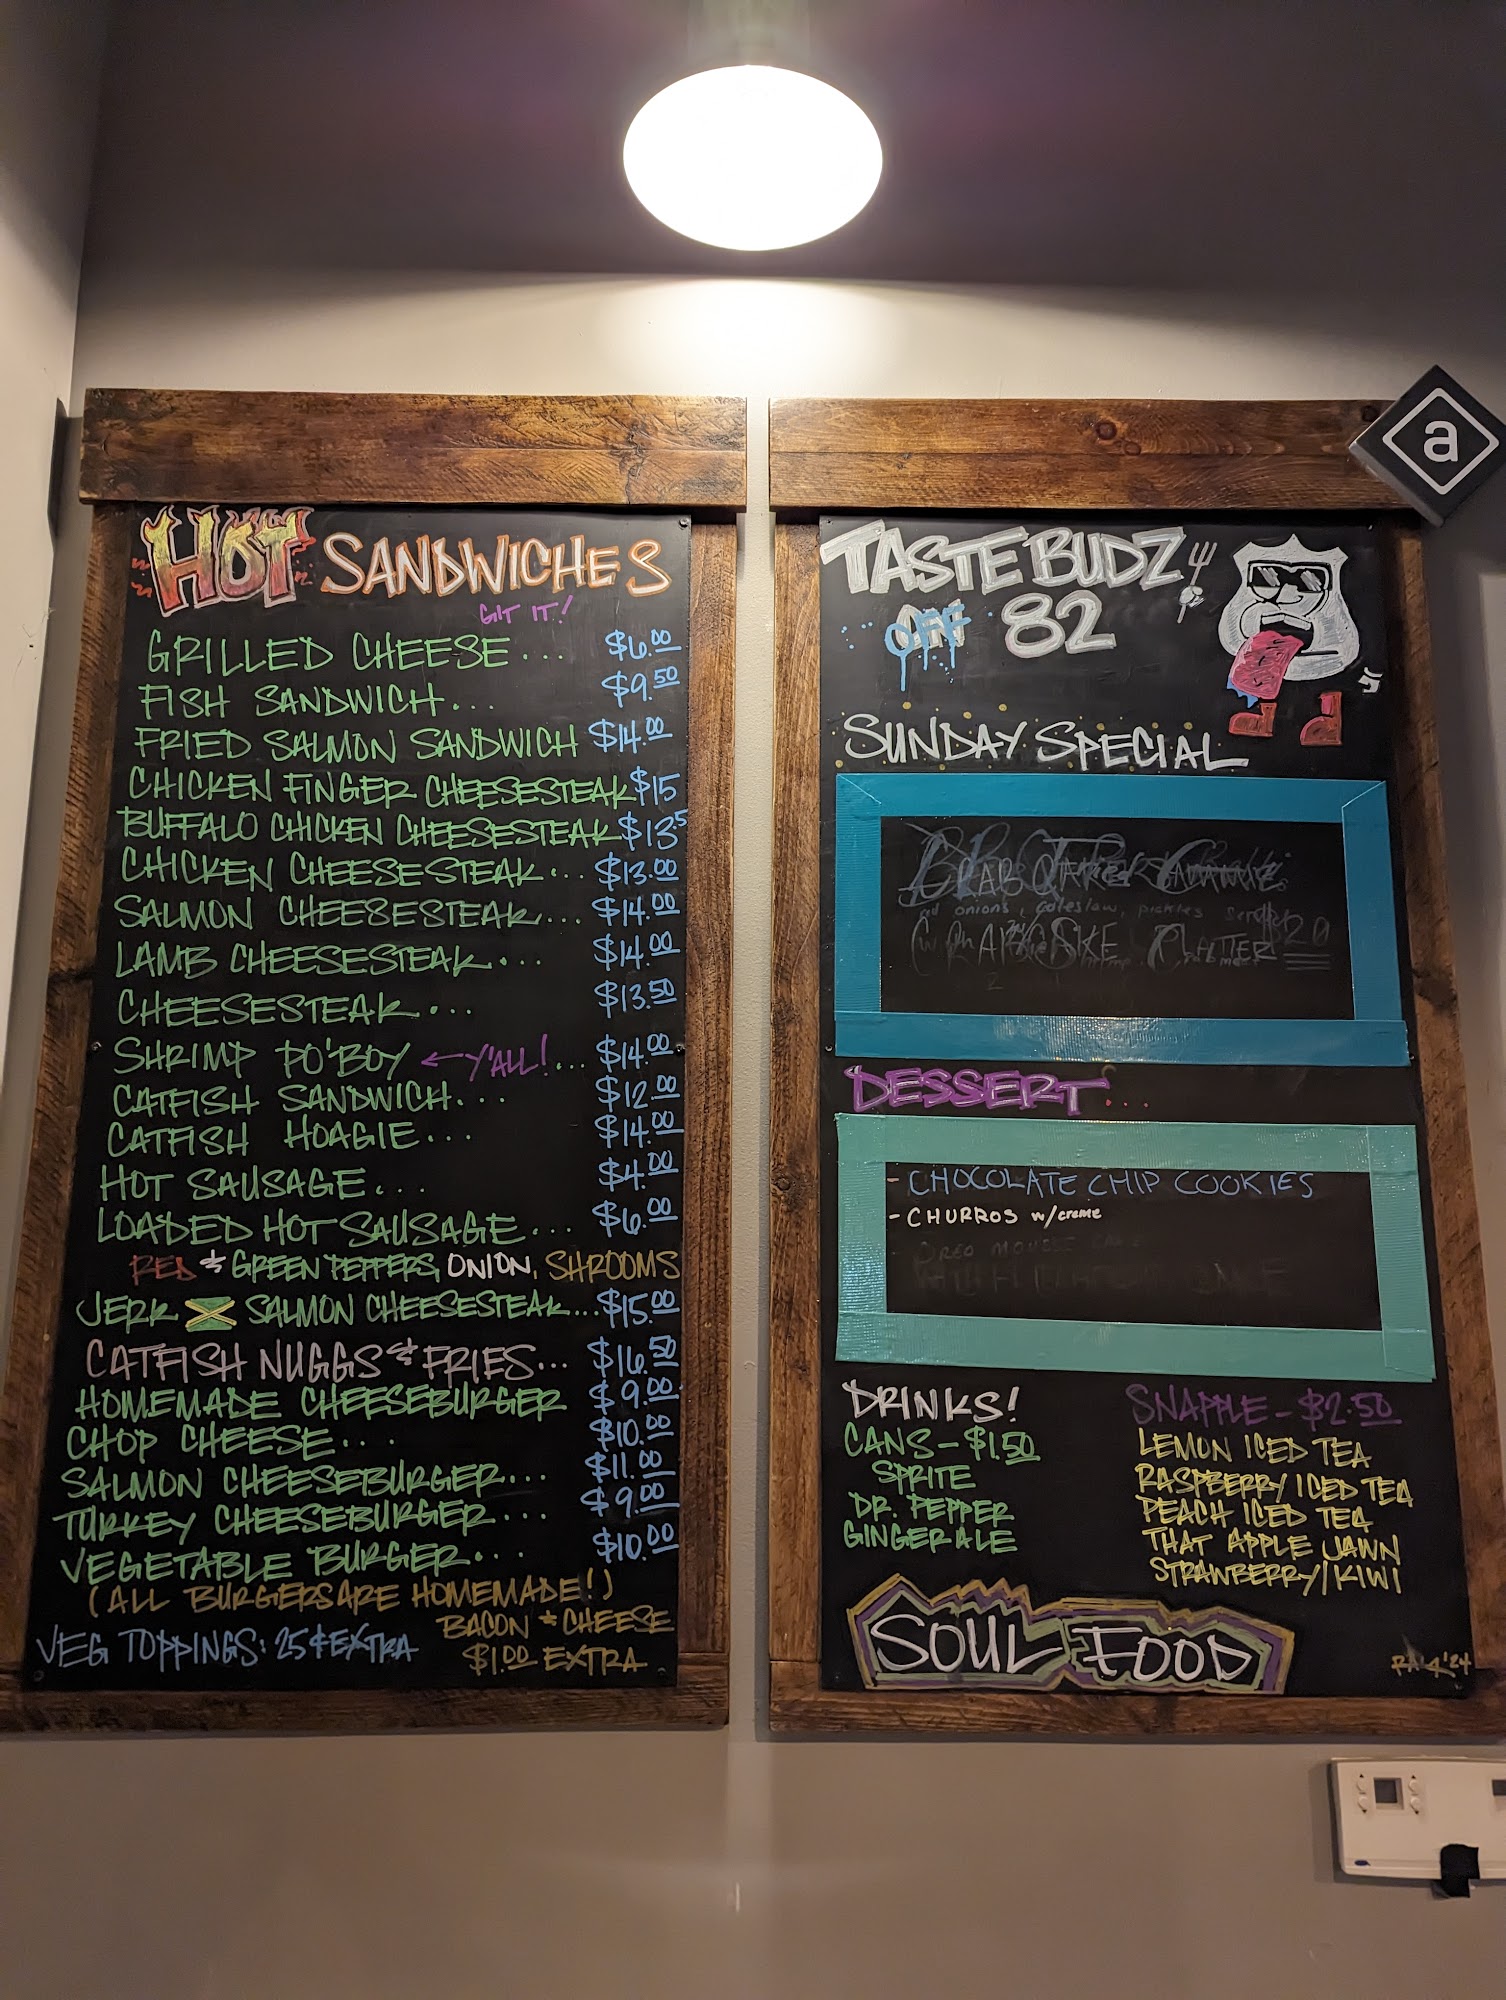 HOT SANDWICHES
GIT IT!
GRILLED CHEESE... $6.00
FISH SANDWICH... $9.50
FRIED SALMON SANDWICH $14.00
CHICKEN FINGER CHEESESTEAK $15
BUFFALO CHICKEN CHEESESTEAK $13.5
CHICKEN CHEESESTEAK... $13.00
SALMON CHEESESTEAK... $14.00
LAMB CHEESESTEAK... $14.00
CHEESESTEAK... $13.50
SHRIMP PO'BOY ← Y'ALL!... $14.00
CATFISH SANDWICH... $12.00
CATFISH HOAGIE... $14.00
HOT SAUSAGE... $4.00
LOADED HOT SAUSAGE... $6.00
RED & GREEN PEPPERS, ONION, SHROOMS
JERK SALMON CHEESESTEAK... $15.00
CATFISH NUGGS & FRIES... $16.50
HOMEMADE CHEESEBURGER $9.00
CHOP CHEESE... $10.00
SALMON CHEESEBURGER... $11.00
TURKEY CHEESEBURGER... $9.00
VEGETABLE BURGER... $10.00
(ALL BURGERS ARE HOMEMADE!)
VEG TOPPINGS: 25¢ EXTRA
BACON & CHEESE
$1.00 EXTRA
a
TASTE BUDZ
OFF 82
SUNDAY SPECIAL
onions, coleslaw, pickles
PLATTER $20
DESSERT...
- CHOCOLATE CHIP COOKIES
- CHURROS w/creme
- OREO MOUSSE CAKE
DRINKS!
CANS - $1.50
SPRITE
DR. PEPPER
GINGERALE
SNAPPLE - $2.50
LEMON ICED TEA
RASPBERRY ICED TEA
PEACH ICED TEA
THAT APPLE JAWN
STRAWBERRY/KIWI
SOUL FOOD
'24